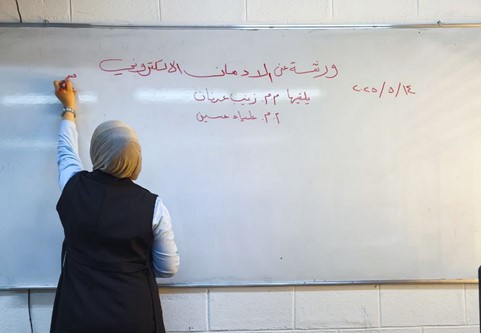 ورشة عن الادمان الالكتروني
٢٠٢٥/٥/١٤
يلقيها م.م. زينب عدنان
م.م. علياء حسين